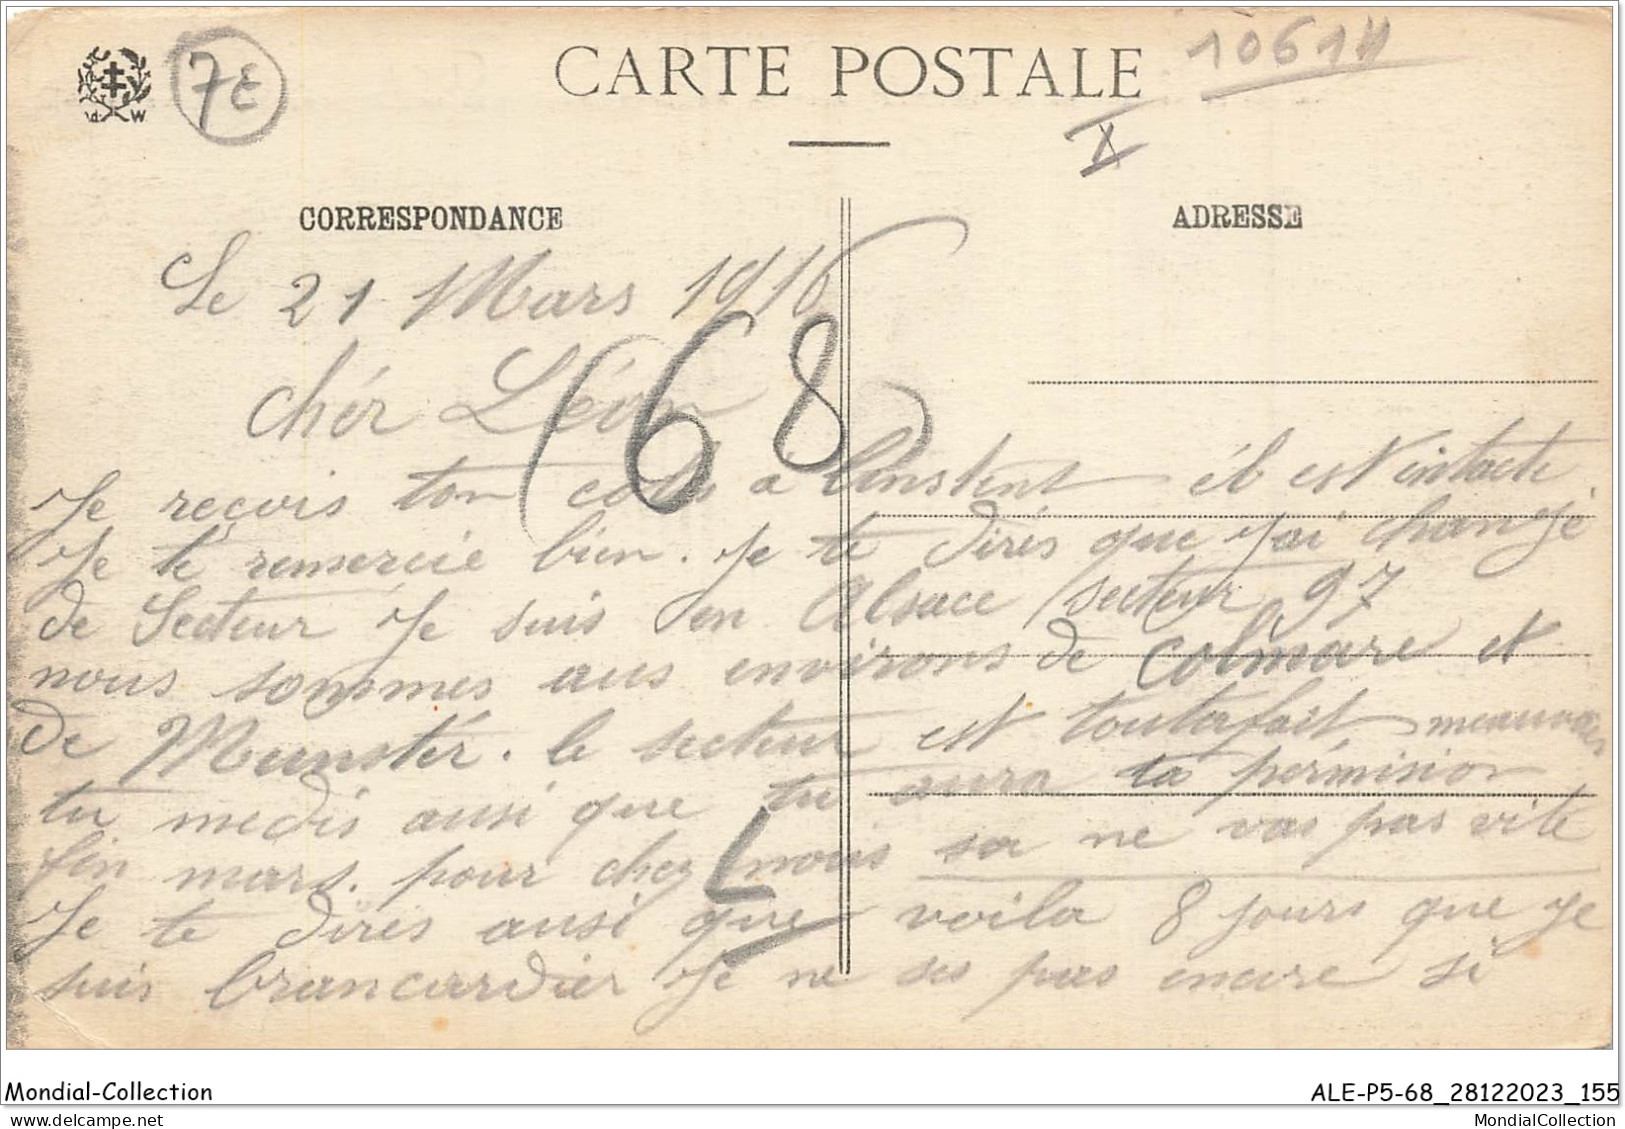 7€
CARTE POSTALE
10614
X
d W
CORRESPONDANCE
ADRESSE
Le 21 Mars 1916
(68)
chér Léon
Je reçois ton colis a linstent il est intacte
Je te remercie bien. Je te dirés que j'ai changé
de Secteur Je suis en Alsace secteur 97
nous sommes aus environs de Colmare et
de Munstér. le secteur est toutafait meauvais
tu medis ausi que tu aura ta pérmision
fin mars. pour chez nous sa ne vas pas vite
Je te dirés ausi que voila 8 jours que je
suis brancardier Je ne ses pas encore si
L
Mondial-Collection
ALE-P5-68_28122023_155
posted on the site of www.delcampe.net
MondialCollection